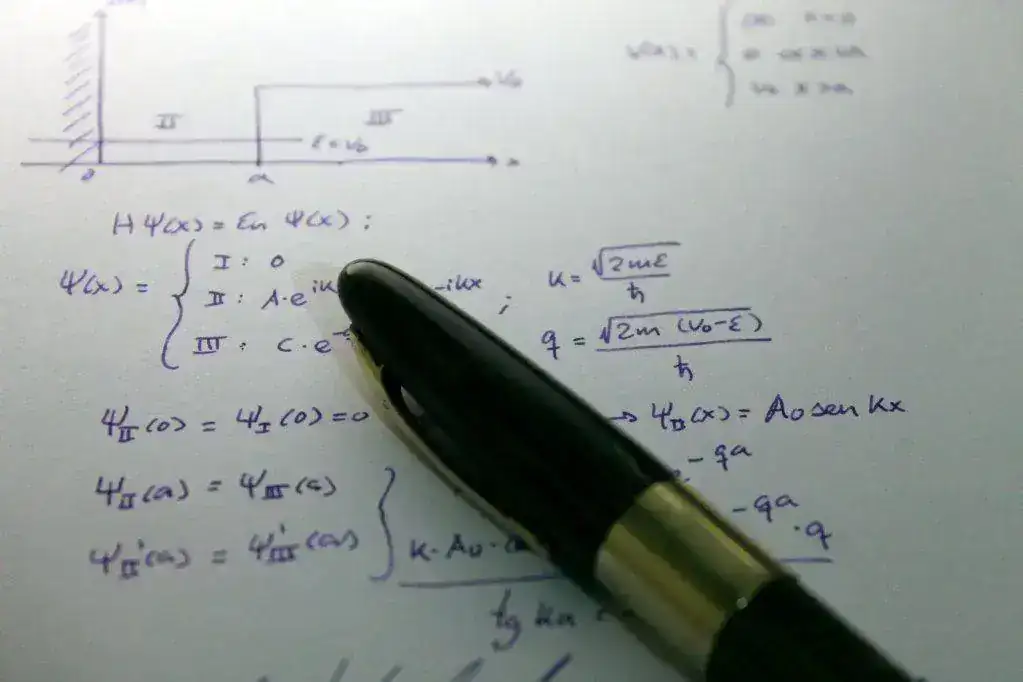 II
III
V₀
E < V₀
0 a x
H Ψ(x) = En Ψ(x) ;
Ψ(x) = {
I : 0
II : A·e^ik -ikx ;
III : C·e^-
k = √2mE / ħ
q = √2m (V₀-E) / ħ
Ψ_II(0) = Ψ_I(0) = 0 → Ψ_II(x) = A₀ sen Kx
Ψ_II(a) = Ψ_III(a) } -qa
Ψ'_II(a) = Ψ'_III(a) K·A₀· -qa ·q
tg Ka